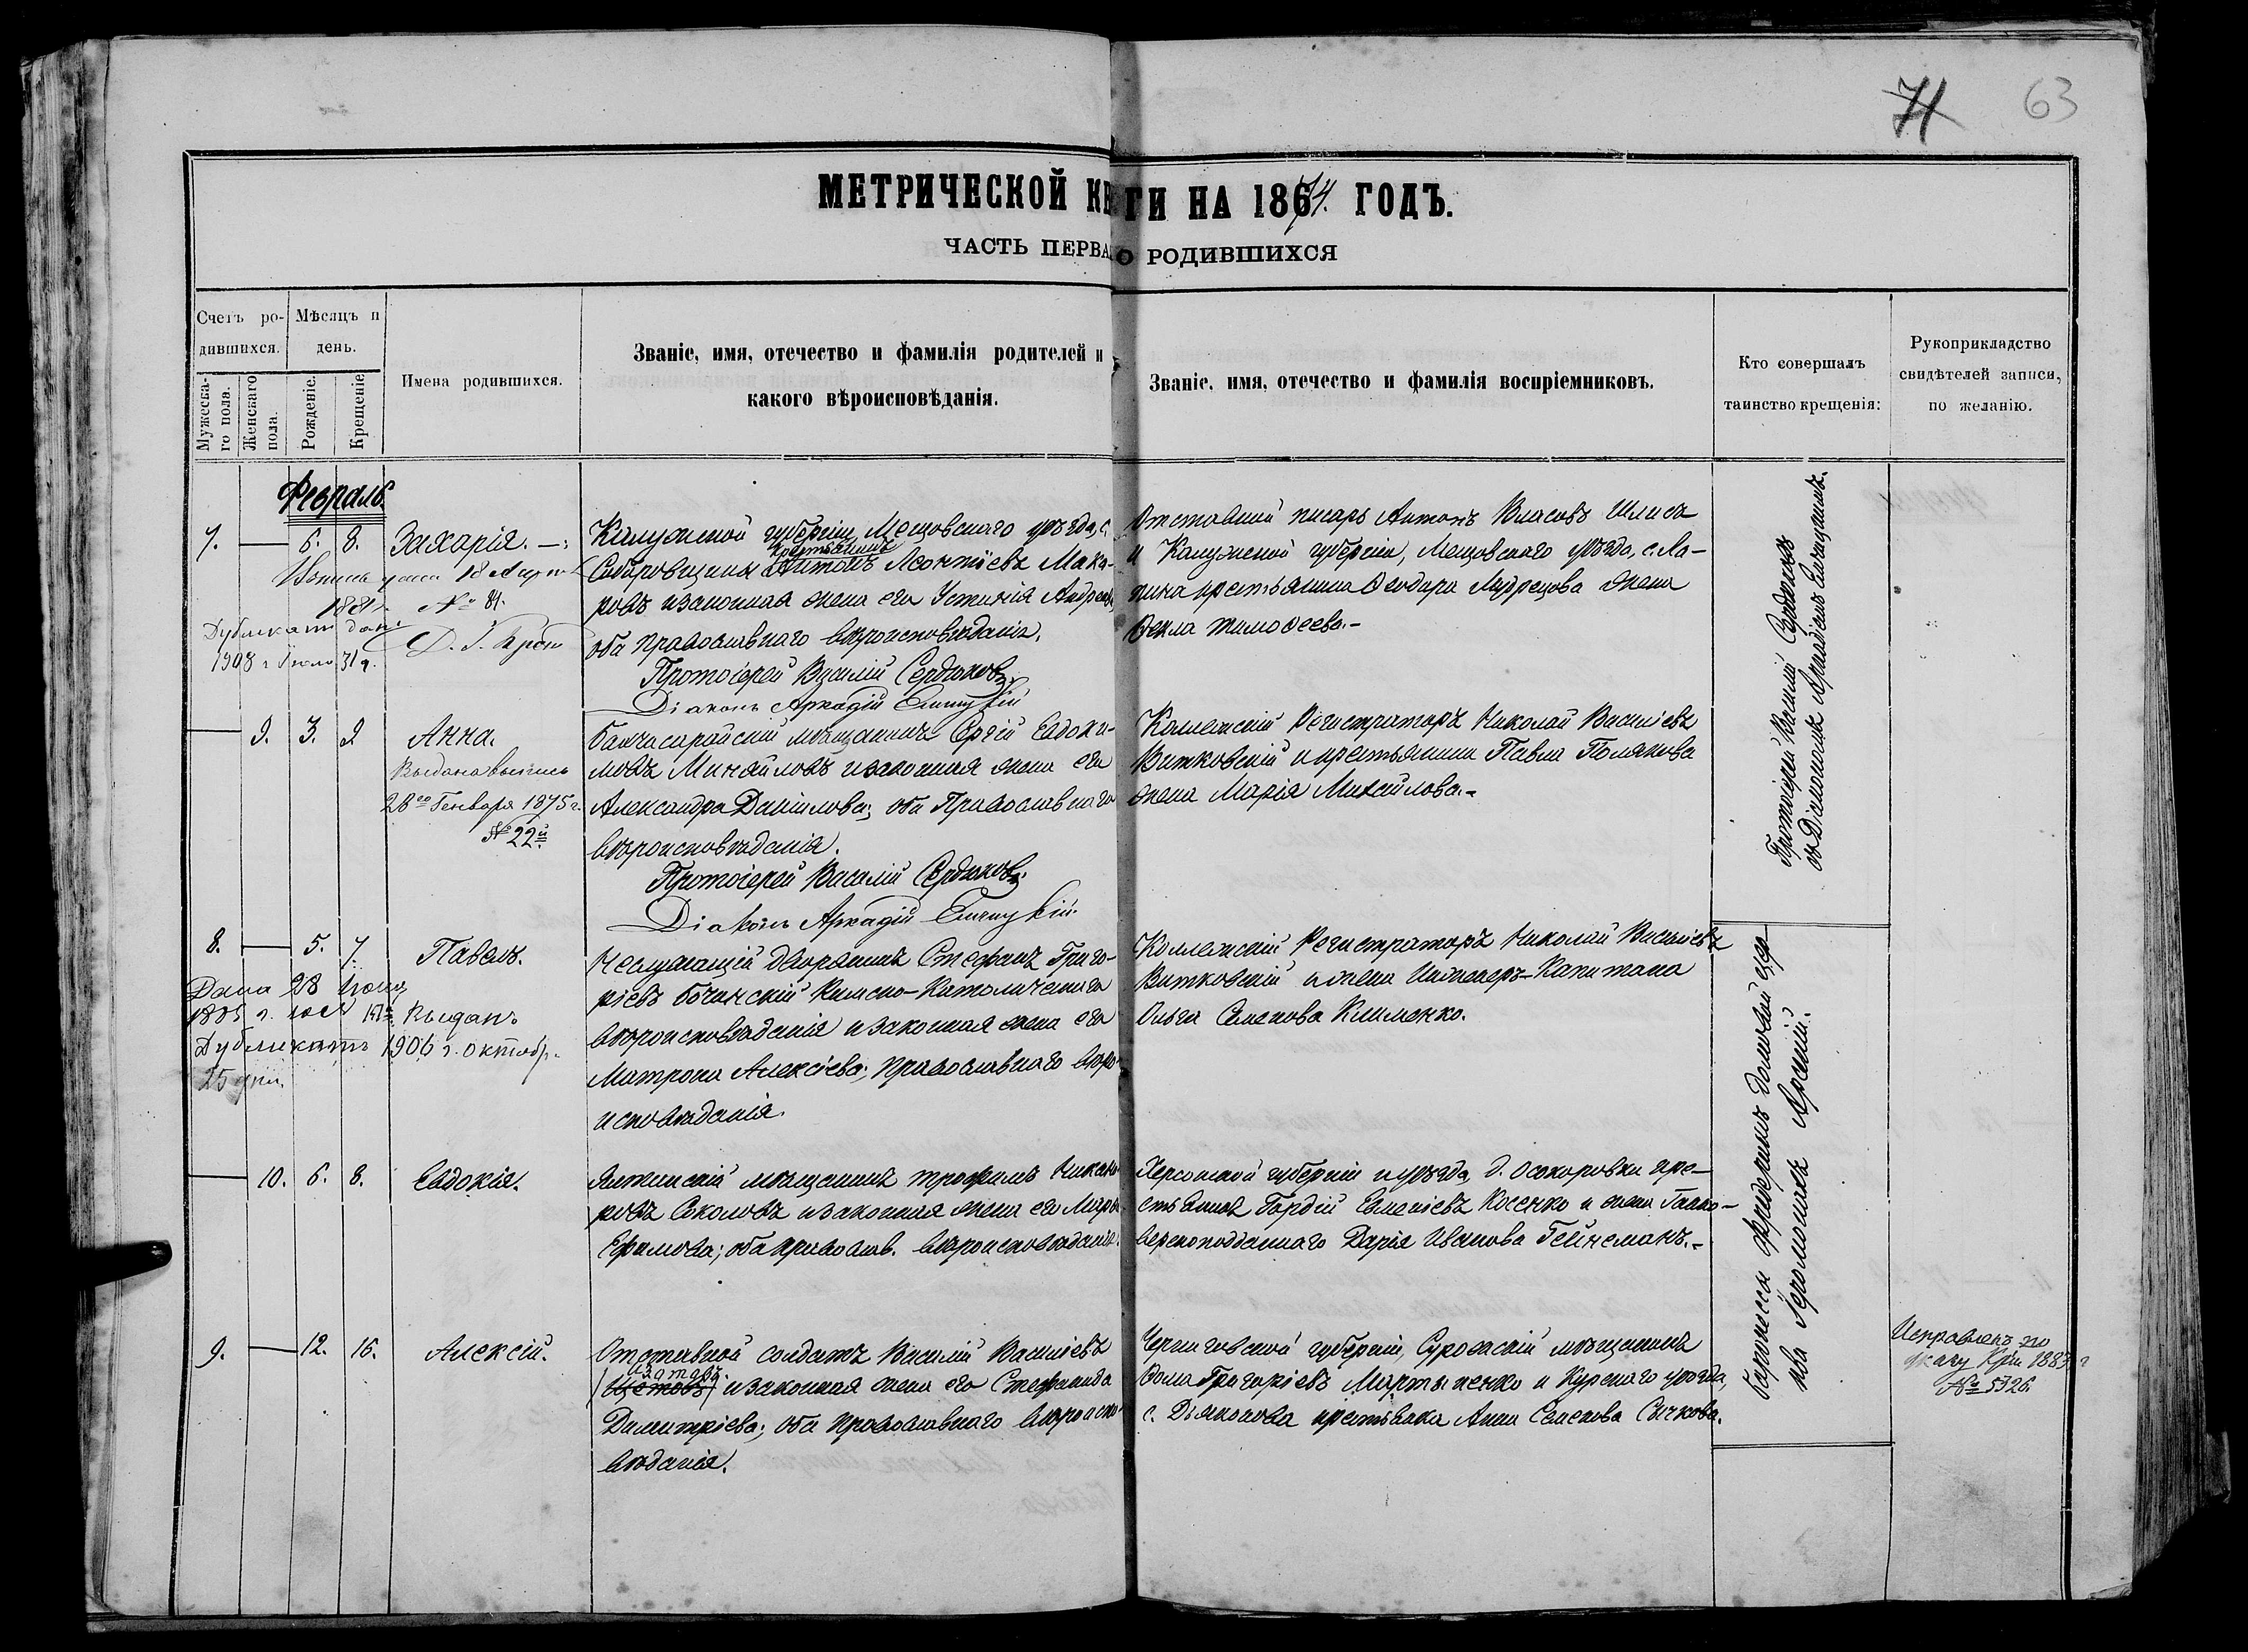 71 63
МЕТРИЧЕСКОЙ КНГИ НА 1874. ГОДЪ.
ЧАСТЬ ПЕРВАО РОДИВШИХСЯ
Счетъ ро-
дившихся.
Мужеска-
го пола.
Женскаго
пола.
Мѣсяцъ и
день.
Рожденіе.
Крещеніе.
Имена родившихся.
Званіе, имя, отечество и фамилія родителей и
какого вѣроисповѣданія.
Званіе, имя, отечество и фамилія воспріемниковъ.
Кто совершалъ
таинство крещенія:
Рукоприкладство
свидѣтелей записи,
по желанію.
Февраль.
7. — 6. 8. Захарія.
18 1881 № 81.
Дубликатъ данъ
1908 г. 31 д.
Калужской губерніи, Мещовскаго уѣзда, с.
крестьянинъ
Антонъ Леонтіевъ Мака-
ровъ и законная жена его Устинія Андреева
оба православнаго вѣроисповѣданія.
Протоіерей Василій Сердюковъ.
Діаконъ Аркадій
Отставной писарь Антонъ Власовъ
и Калужской губерніи, Мещовскаго уѣзда, с. Ла-
пина крестьянина Ѳеодора жена
Ѳекла Тимоѳеева.-
Протоіерей Василій Сердюковъ
съ Діакономъ Аркадіемъ
— 9. 3. 9. Анна.
Выдана выпись
28го Генваря 1875 г.
№ 22й
Бахчисарайскій мѣщанинъ Сергій Евдоки-
мовъ Михайловъ и законная жена его
Александра Даніилова; оба Православнаго
вѣроисповѣданія.
Протоіерей Василій Сердюковъ.
Діаконъ Аркадій
Коллежскій Регистраторъ Николай Василіевъ
Витковскій и крестьянина Павла Полякова
жена Марія Михайлова.-
8. — 5. 7. Павелъ.
Дана 28
Выданъ
Дубликатъ 1906 г. октобр.
25 дня.
Неслужащій дворянинъ Стефанъ Григо-
ріевъ Римско-Католическаго
вѣроисповѣданія и законная жена его
Матрона Алексіева; православнаго вѣро-
исповѣданія.
Коллежскій Регистраторъ Николай Василіевъ
Витковскій и жена Инженеръ-Капитана
Ольга Семенова Клименко.
Баронессы Фридериксъ домовой цер-
кви Іеромонахъ Арсеній.
— 10. 6. 8. Евдокія.
Ялтинскій мѣщанинъ Трофимъ Никано-
ровъ Соколовъ и законная жена его
Ефимова; оба православ. вѣроисповѣданія.
Херсонской губерніи и уѣзда, д. Осокоровки кре-
стьянинъ Гордій Евменіевъ Косенко и жена Гано-
верскоподданнаго Дарія Иванова Гейнеманъ.-
9. — 12. 16. Алексій.
Отставной солдатъ Василій Василіевъ
Изотовъ.
и законная жена его Стефанида
Димитріева; оба православнаго вѣроиспо-
вѣданія.
Черниговской губерніи, Суражскій мѣщанинъ
Ѳома Григоріевъ Мартыненко и Курскаго уѣзда,
с. Дьяконова крестьянка Анна Семенова Сычкова.
Исправленъ по
указу 1883 г
№ 5326.